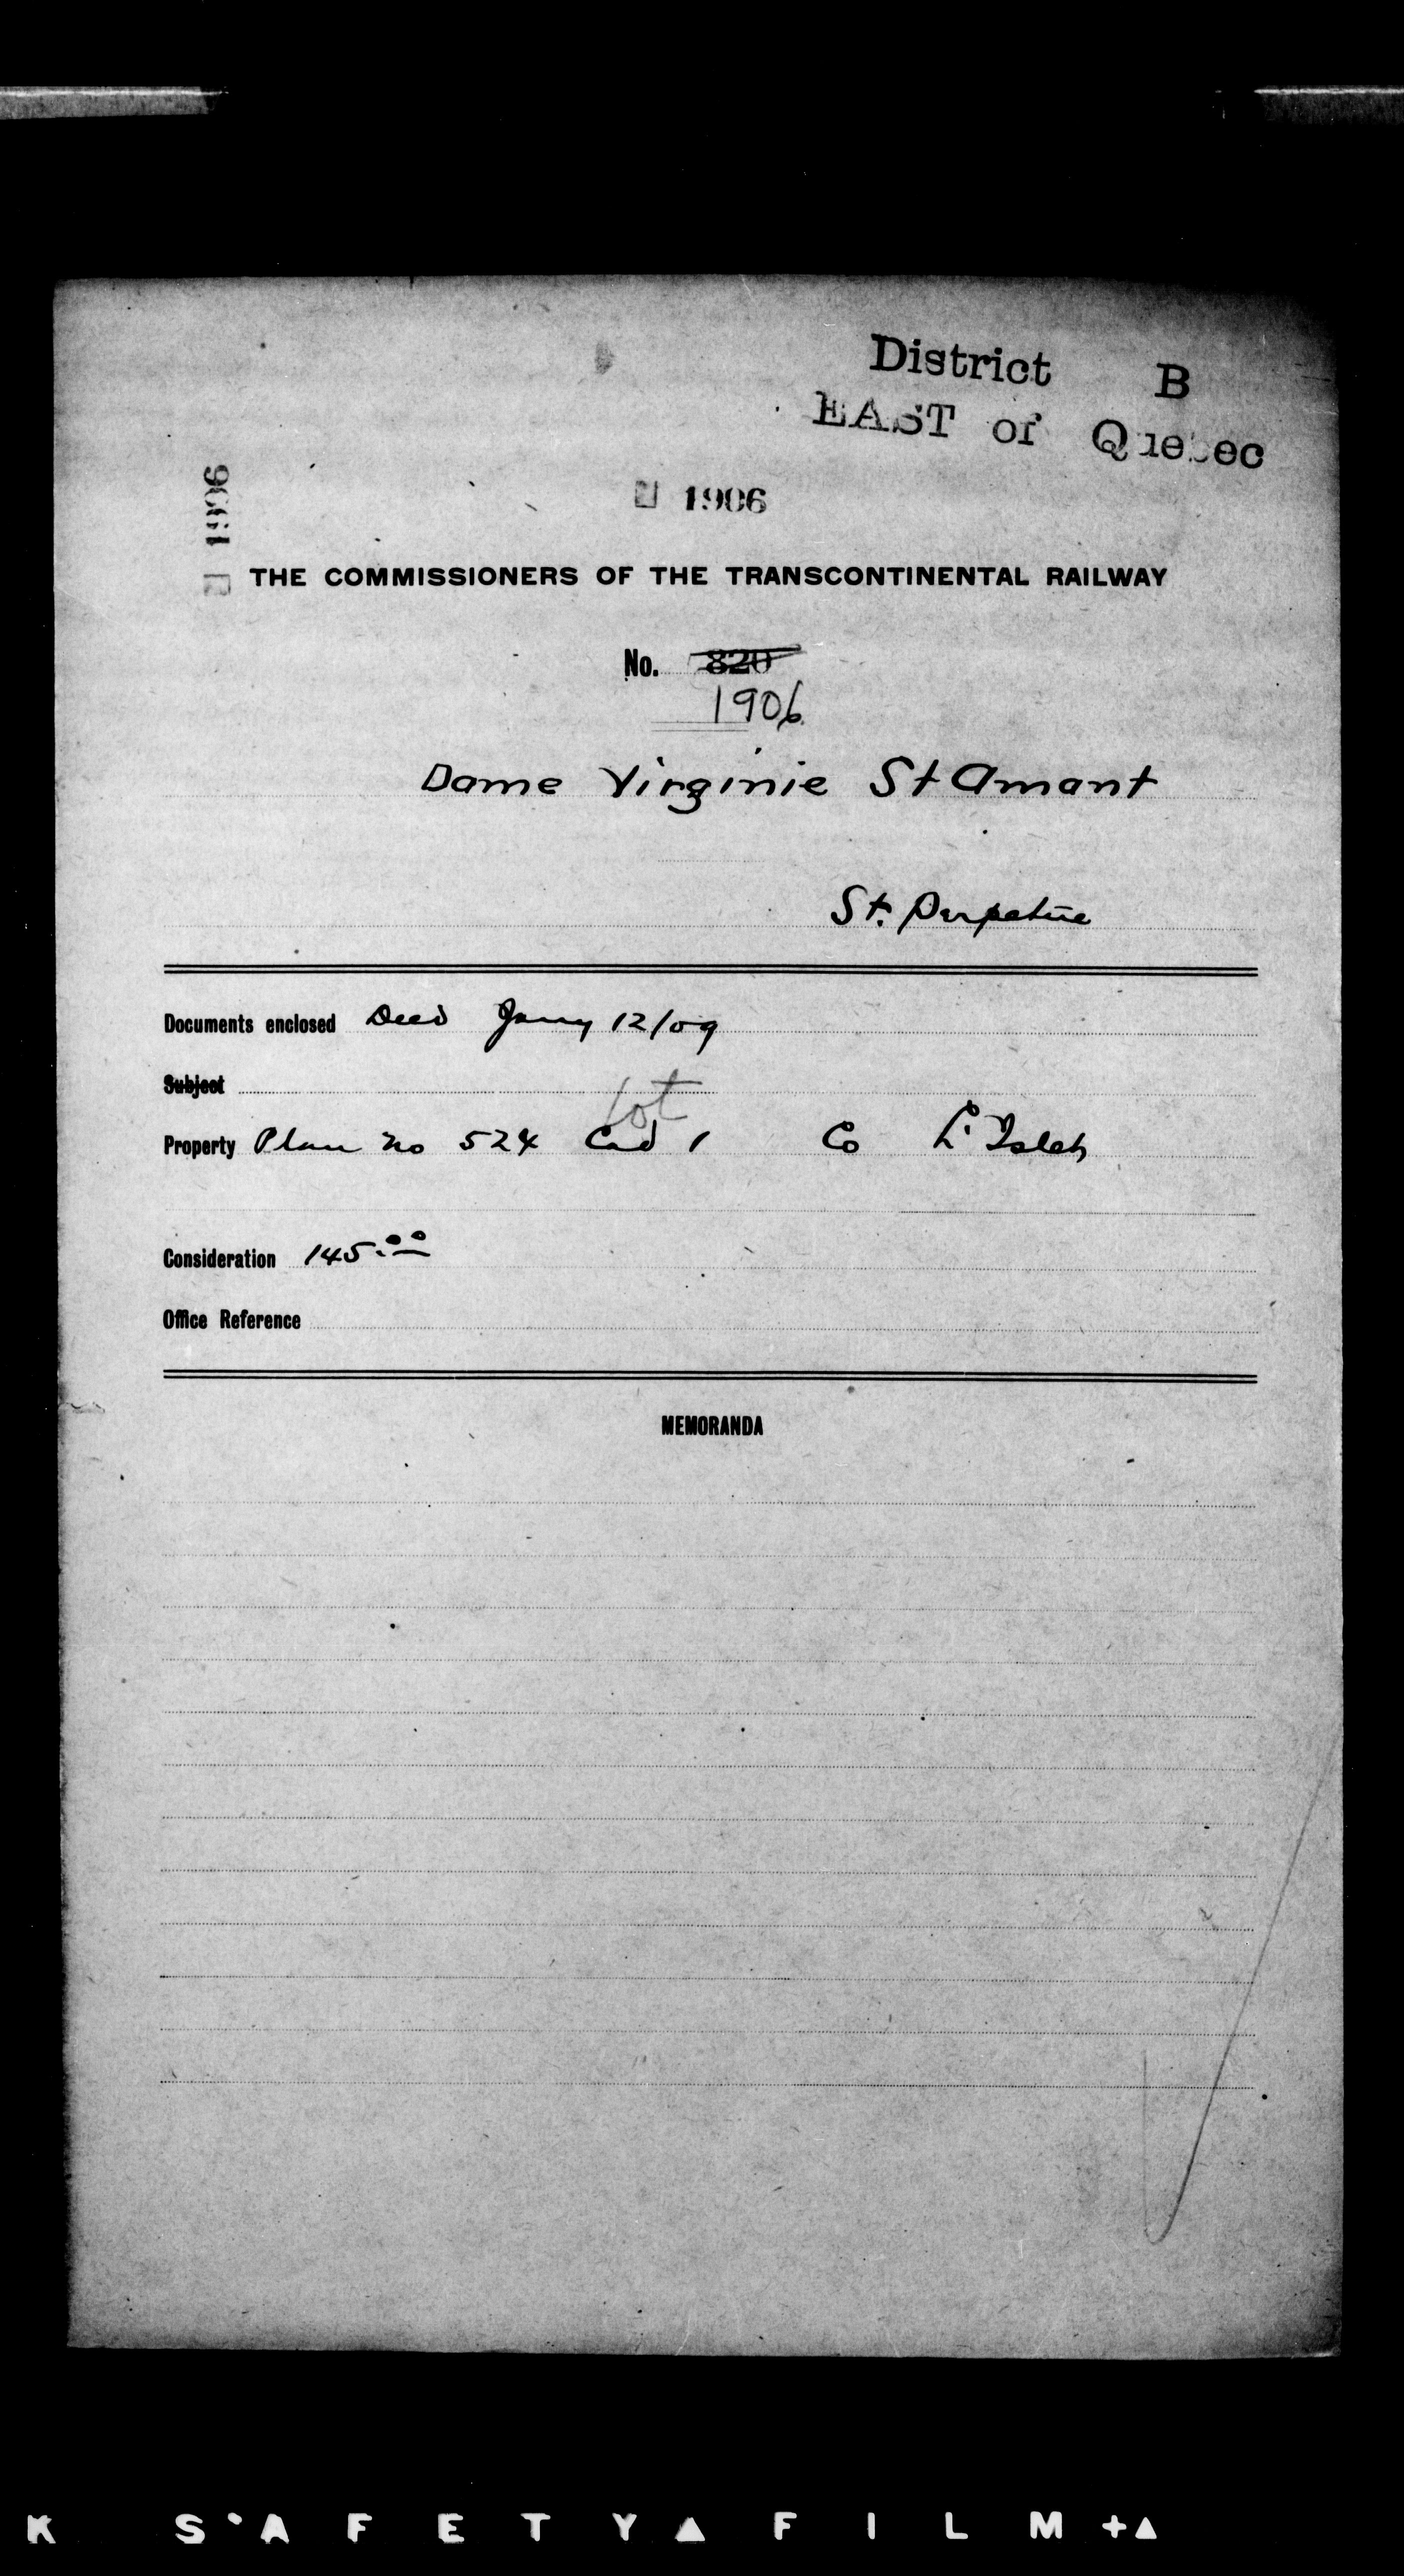 District B
EAST of Quebec
1906
1906
THE COMMISSIONERS OF THE TRANSCONTINENTAL RAILWAY
No. 820
1906
Dame Virginie St Amant
St. Perpetue
Documents enclosed Deed Jany 12/09
Subject
lot
Property Plan No 524 Cad 1 Co L'Islet
Consideration 145.00
Office Reference
MEMORANDA
K SAFETY FILM